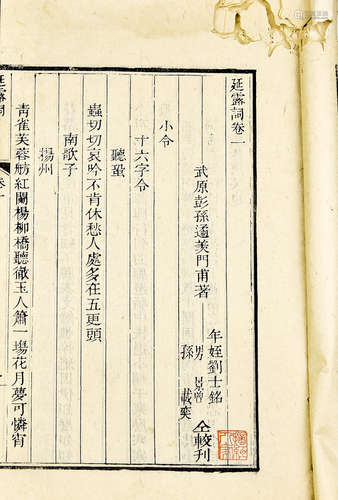 延露詞卷一
武原彭孫遹羡門甫著
年姪劉士銘
男景曾
孫載奕
仝較刊
小令
十六字令
聽蛩
蛩切切哀吟不肯休愁人處多在五更頭
南歌子
揚州
青雀芙蓉舫紅闌楊柳橋聽徹玉人簫一場花月夢可憐宵
延露詞
卷一